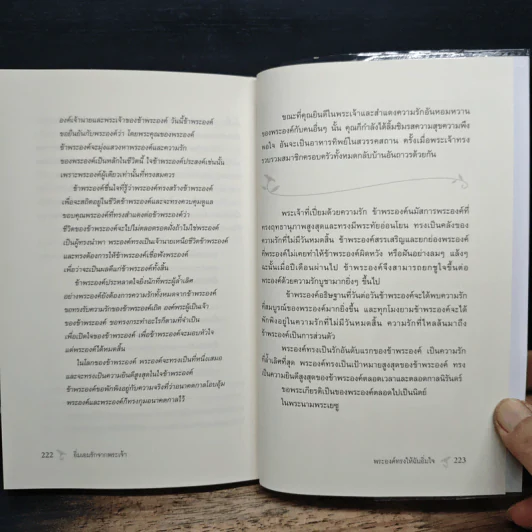 องค์เจ้านายและพระเจ้าของข้าพระองค์ วันนี้ข้าพระองค์
ขอยืนยันกับพระองค์ว่า โดยพระคุณของพระองค์
ข้าพระองค์จะมุ่งแสวงหาพระองค์และความรัก
ของพระองค์เป็นหลักในชีวิตนี้ ใจข้าพระองค์ประสงค์เช่นนั้น
เพราะพระองค์ผู้เดียวเท่านั้นที่ทรงสมควร
ข้าพระองค์ซึ้งใจที่รู้ว่าพระองค์ทรงสร้างข้าพระองค์
เพื่อจะสถิตอยู่ในชีวิตข้าพระองค์และจะทรงควบคุมดูแล
ขอบคุณพระองค์ที่ทรงสำแดงต่อข้าพระองค์ว่า
ชีวิตของข้าพระองค์จะไปไม่ตลอดรอดฝั่งถ้าไม่ใช่พระองค์
เป็นผู้ทรงนำพา พระองค์ทรงเป็นเจ้านายเหนือชีวิตข้าพระองค์
และทรงต้องการให้ข้าพระองค์เชื่อฟังพระองค์
เพื่อว่าจะเป็นผลดีแก่ข้าพระองค์ทั้งสิ้น
ข้าพระองค์ประหลาดใจยิ่งนักที่พระผู้ล้ำเลิศ
อย่างพระองค์ยังต้องการความรักทั้งหมดจากข้าพระองค์
ขอทรงรับความรักของข้าพระองค์เถิด องค์พระผู้เป็นเจ้า
ของข้าพระองค์ ขอทรงกระทำอะไรก็ตามที่จำเป็น
เพื่อเปิดใจของข้าพระองค์ เพื่อข้าพระองค์จะมอบหัวใจ
แด่พระองค์ได้หมดสิ้น
ในโลกของข้าพระองค์ พระองค์จะทรงเป็นที่หนึ่งเสมอ
และจะทรงเป็นความยินดีสูงสุดในใจข้าพระองค์
ข้าพระองค์ขอพักพิงอยู่กับความจริงที่ว่าอนาคตกาลโอบอุ้ม
พระองค์และพระองค์ทรงกุมอนาคตกาลไว้
222 อิ่มเอมรักจากพระเจ้า
ขณะที่คุณยินดีในพระเจ้าและสำแดงความรักอันหอมหวาน
ของพระองค์กับคนอื่นๆ นั้น คุณก็กำลังได้ลิ้มชิมรสความสุขความพึง
พอใจ อันจะเป็นอาหารทิพย์ในสวรรคสถาน ครั้งเมื่อพระเจ้าทรง
รวบรวมสมาชิกครอบครัวทั้งหมดกลับบ้านอันถาวรด้วยกัน
พระเจ้าที่เปี่ยมด้วยความรัก ข้าพระองค์นมัสการพระองค์ที่
ทรงฤทธานุภาพสูงสุดและทรงมีพระทัยอ่อนโยน ทรงเป็นคลังของ
ความรักที่ไม่มีวันหมดสิ้น ข้าพระองค์สรรเสริญและยกย่องพระองค์
ที่พระองค์ไม่เคยทำให้ข้าพระองค์ผิดหวัง หรือผันอย่างลมๆ แล้งๆ
ฉะนั้นเมื่อปีเดือนผ่านไป ข้าพระองค์จึงสามารถยกชูใจขึ้นต่อ
พระองค์ด้วยความรักบูชามากยิ่งๆ ขึ้นไป
ข้าพระองค์อธิษฐานที่วันต่อวันข้าพระองค์จะได้พบความรัก
ที่สมบูรณ์ของพระองค์มากยิ่งขึ้น และทุกโมงยามข้าพระองค์จะได้
พักพิงอยู่ในความรักที่ไม่มีวันหมดสิ้น ความรักที่ไหลล้นมาถึง
ข้าพระองค์เป็นการส่วนตัว
พระองค์ทรงเป็นรักอันดับแรกของข้าพระองค์ เป็นความรัก
ที่ล้ำเลิศที่สุด พระองค์ทรงเป็นเป้าหมายสูงสุดของข้าพระองค์ ทรง
เป็นความยินดีสูงสุดของข้าพระองค์ตลอดเวลาและตลอดกาลนิรันดร์
ขอพระเกียรติเป็นของพระองค์ตลอดไปเป็นนิตย์
ในพระนามพระเยซู
พระองค์ทรงให้ฉันอิ่มใจ 223